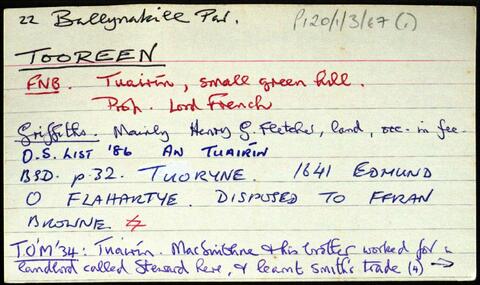 22 Ballynakill Par. P120/1/3/67 (1)
TOOREEN
FNB. Tuairín, small green hill.
Prop. Lord French
Griffiths. Mainly Henry G. Fletcher, land, occ. in fee.
O.S. LIST '86 AN TUAIRÍN
BSD. p. 32. TUORYNE. 1641 EDMUND
O FLAHARTYE. DISPOSED TO FFRAN
BROWNE
T.O'M '34: Tuairín. Mac Smithne & his brother worked for a
landlord called Steward here, & learnt smith's trade (4) →